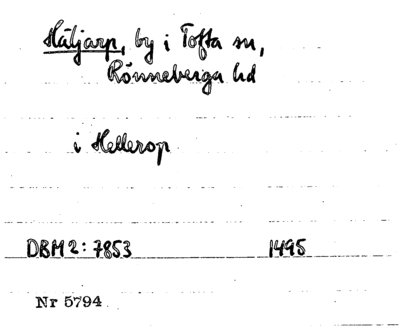 Häljarp, by i Tofta sn,
Rönneberga hd
i Hellerop
DBM 2: 7853 1495
Nr 5794